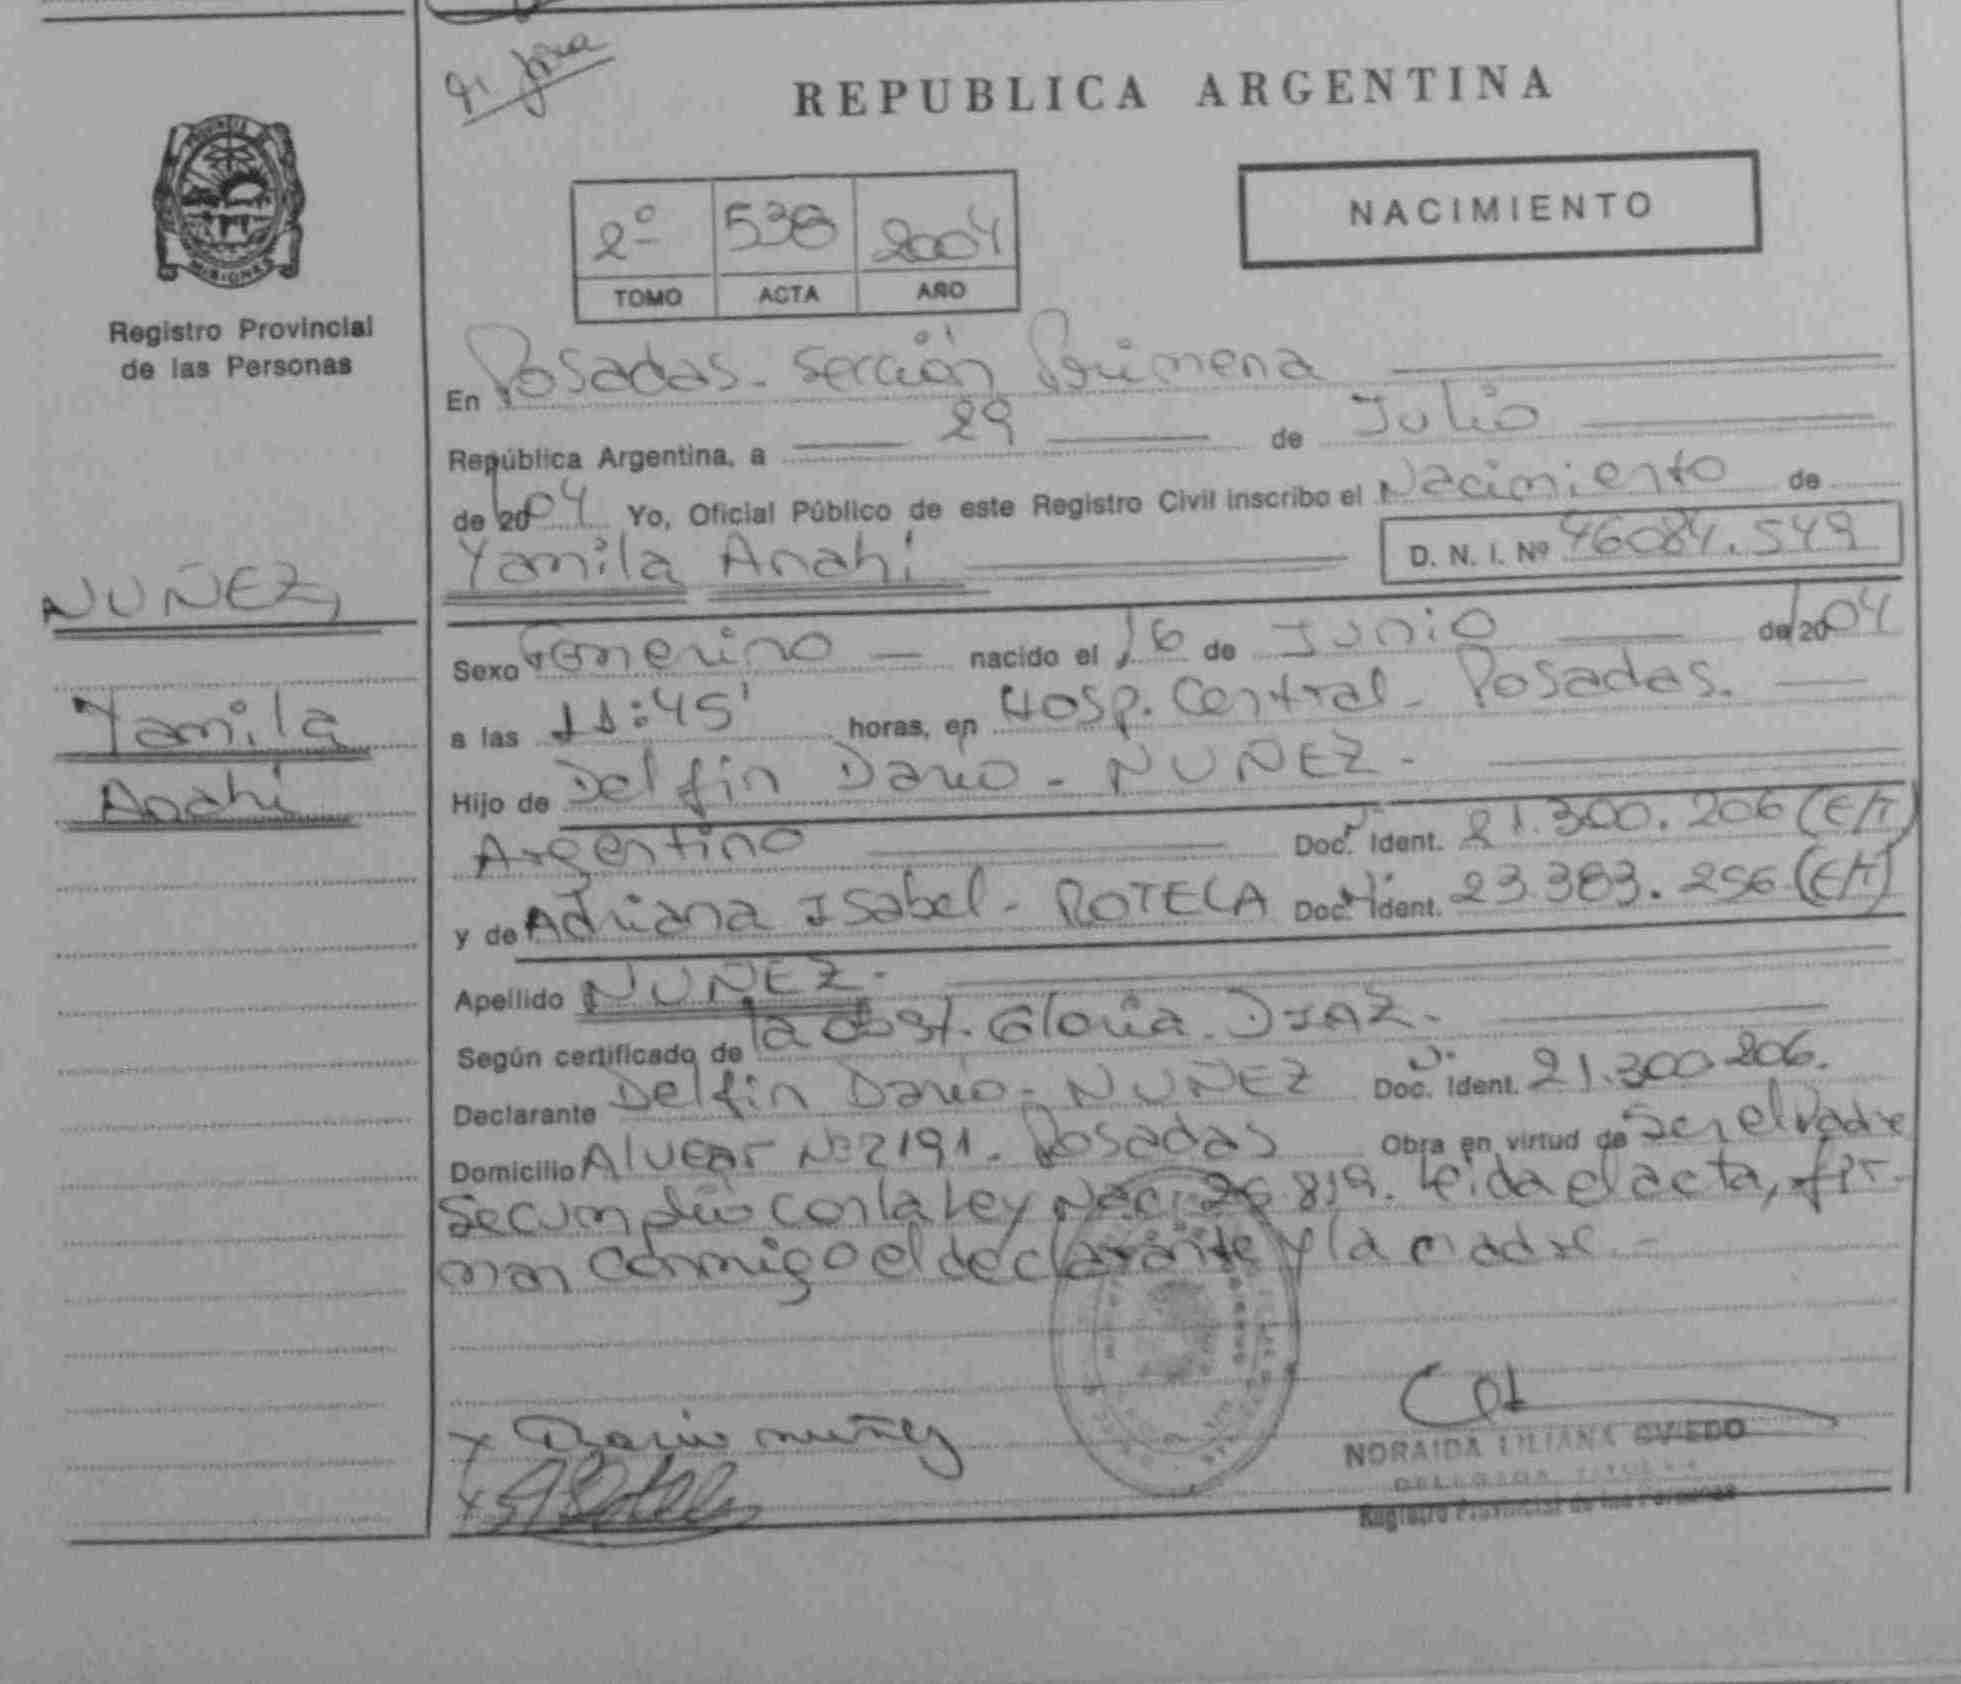 REPUBLICA ARGENTINA
NACIMIENTO
2º 538 2004
TOMO ACTA AÑO
MISIONES
Registro Provincial
de las Personas
En Posadas. Sección Primera
República Argentina, a 29 de Julio
de 2004 Yo, Oficial Público de este Registro Civil inscribo el Nacimiento de
Yamila Anahi D. N. I. Nº 46084.549
NUÑEZ,
Yamila
Anahi
Sexo Femenino nacido el 16 de Junio de 2004
a las 11:45' horas, en Hosp. Central - Posadas.
Hijo de Delfin Dario - NUÑEZ -
Argentino Doc. Ident. 21.300.206 (E/T)
y de Adriana Isabel - ROTELA Doc. Ident. 23.383.256 (E/T)
Apellido NUÑEZ -
Según certificado de la obst. Gloria DIAZ -
Declarante Delfin Dario - NUÑEZ Doc. Ident. 21.300.206.
Domicilio Alvear Nº 2191 - Posadas Obra en virtud de ser el Padre
Se cumplió con la Ley Nac. leida el acta, fir-
man conmigo el declarante y la madre -
x Dario nuñez
NORAIDA LILIANA OVIEDO
DELEGADA TITULAR
Registro Provincial de las Personas